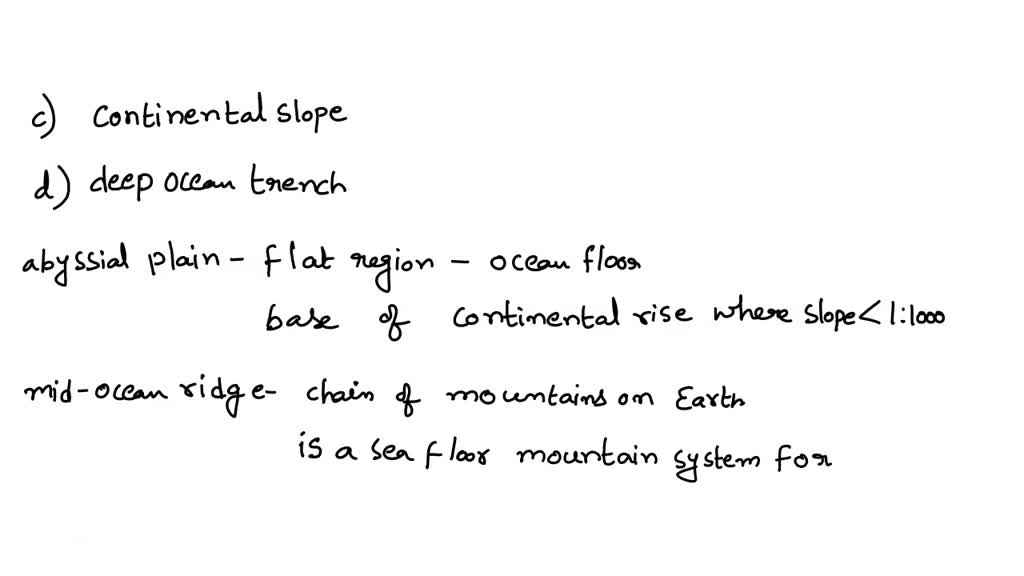 c) continental slope
d) deep ocean trench
abyssial plain - flat region - ocean floor
base of continental rise where slope < 1:1000
mid-ocean ridge- chain of mountains on Earth
is a sea floor mountain system for